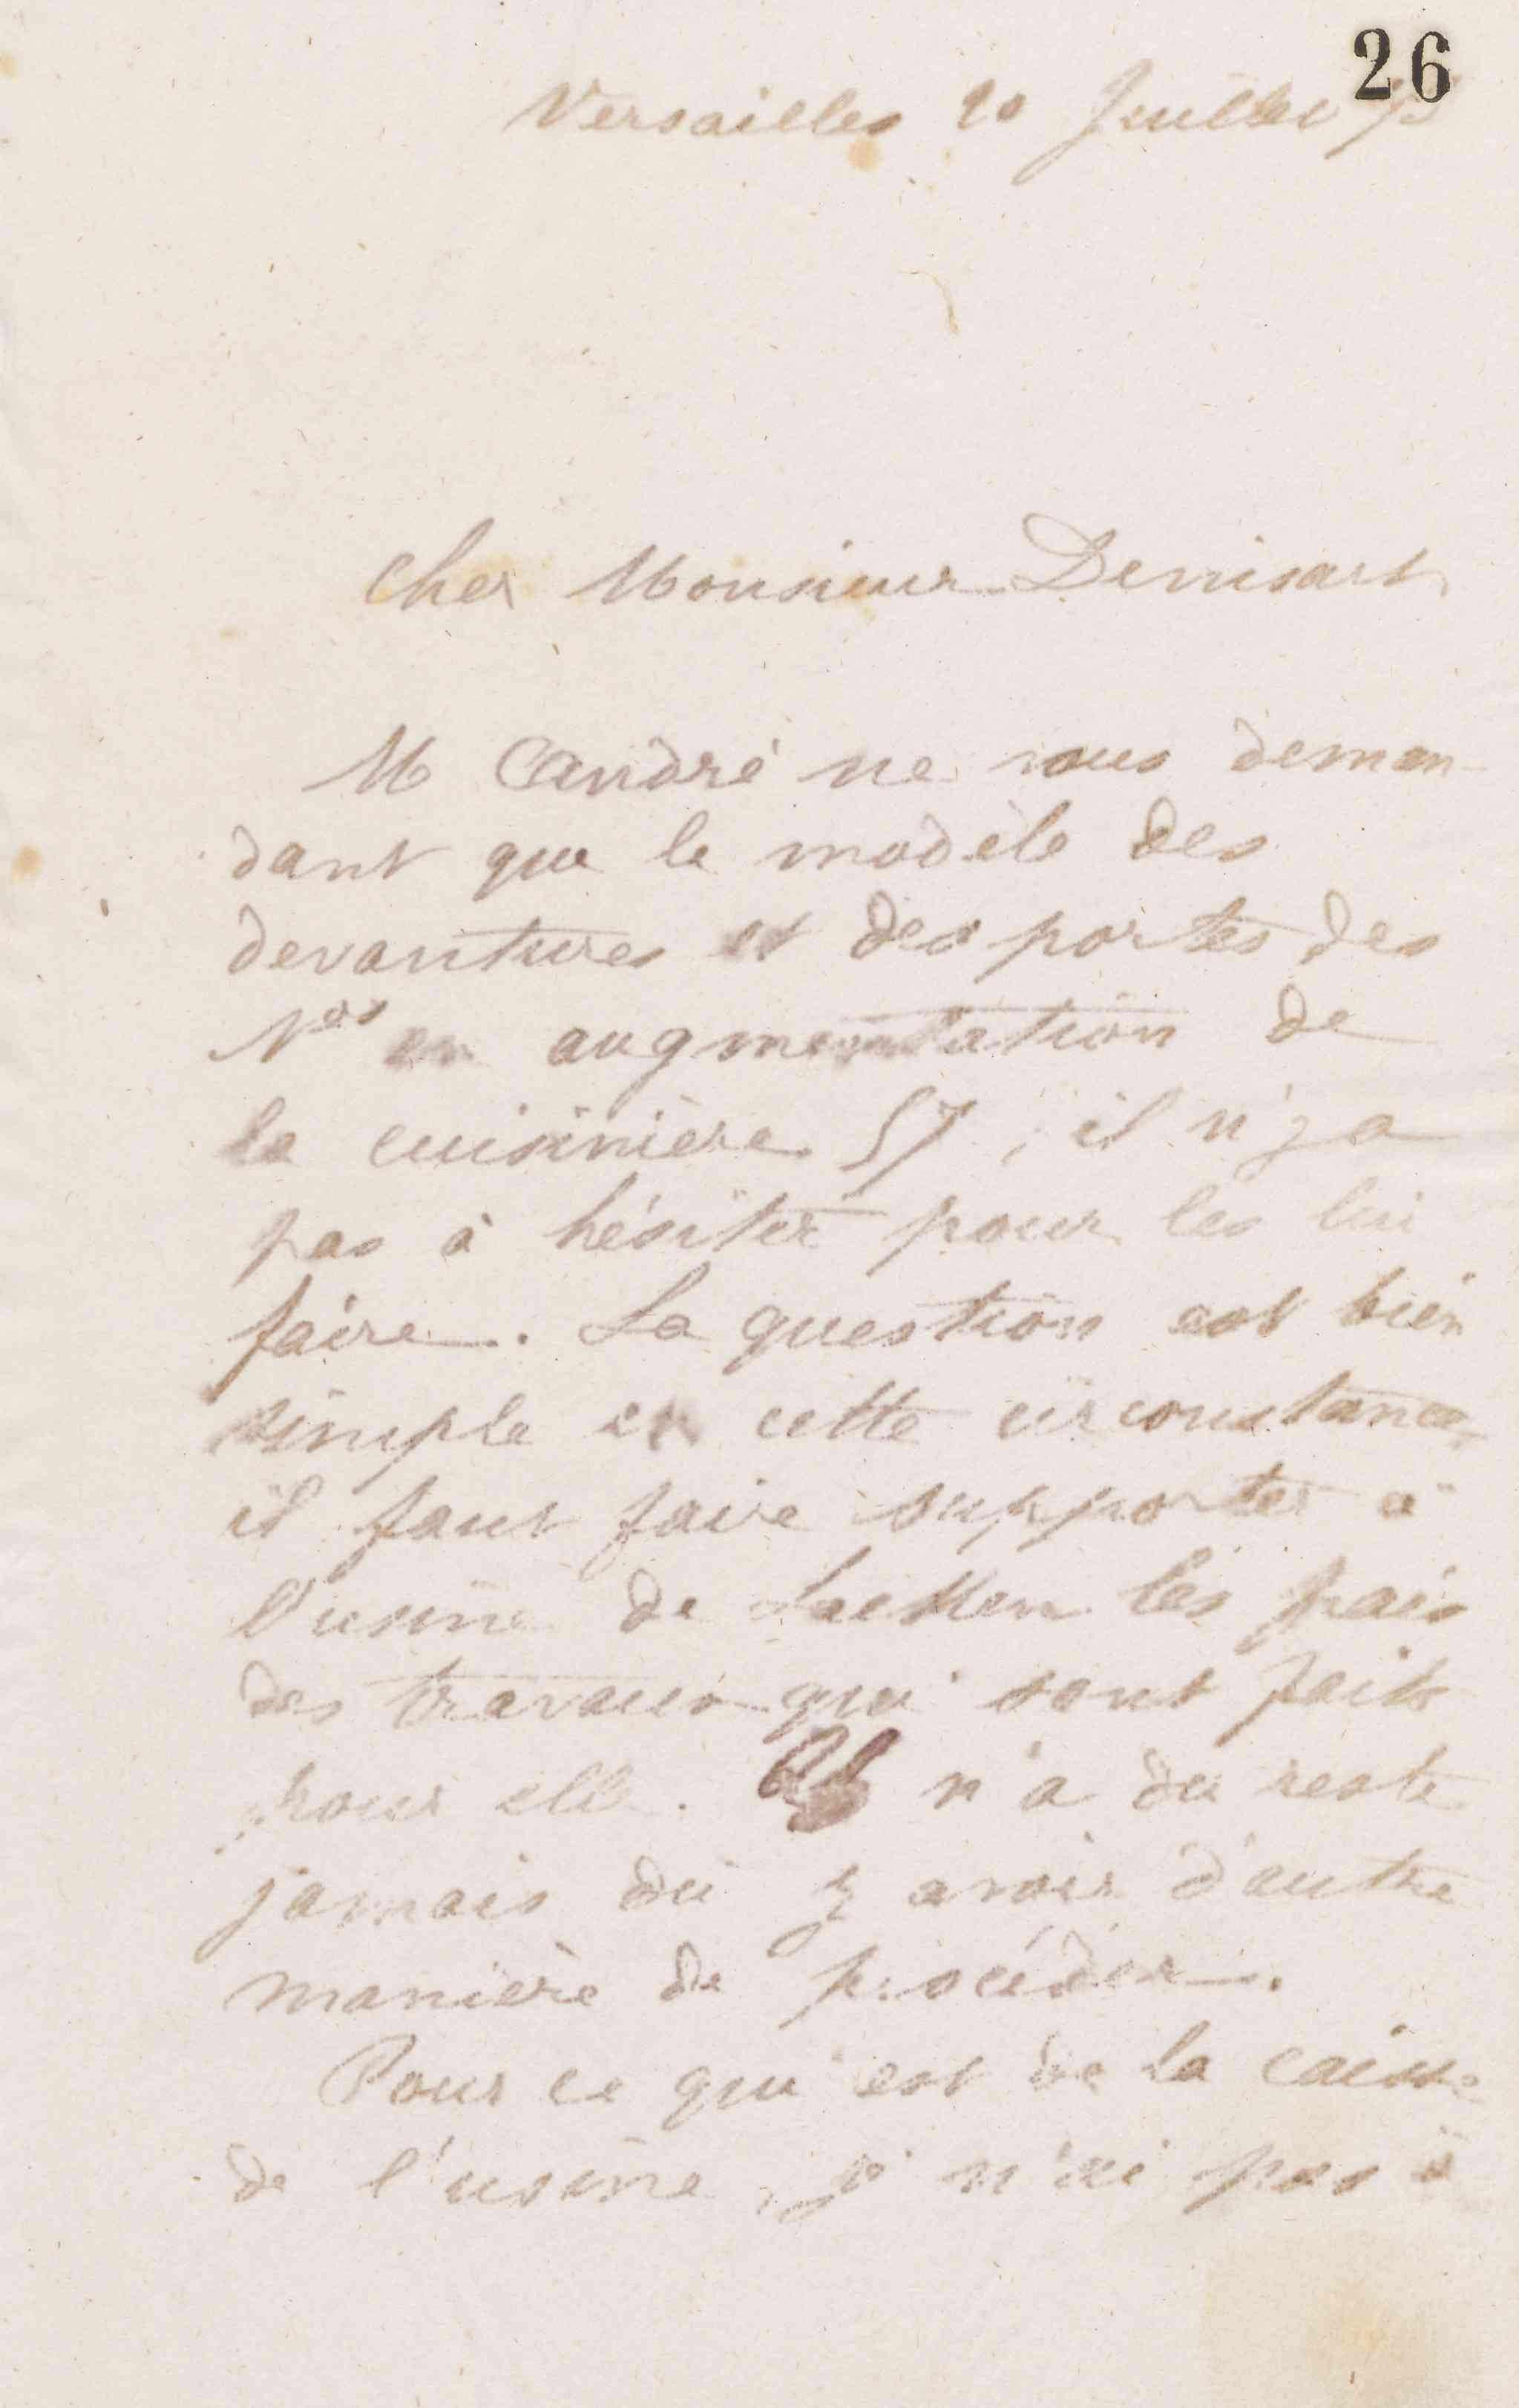 26
Versailles 20 Juillet 75
Cher Monsieur Denisart
M André ne vous deman-
dant que le modèle des
devantures et des portes des
Nos en augmentation de
la cuisinière 57, il n'y a
pas à hésiter pour les lui
faire. La question est bien
simple en cette circonstance,
il faut faire supporter à
l'usine de Laeken les frais
des travaux qui sont faits
pour elle. Il n'a du reste
jamais dû y avoir d'autre
manière de procéder.
Pour ce qui est de la caisse
de l'usine, je n'ai pas à